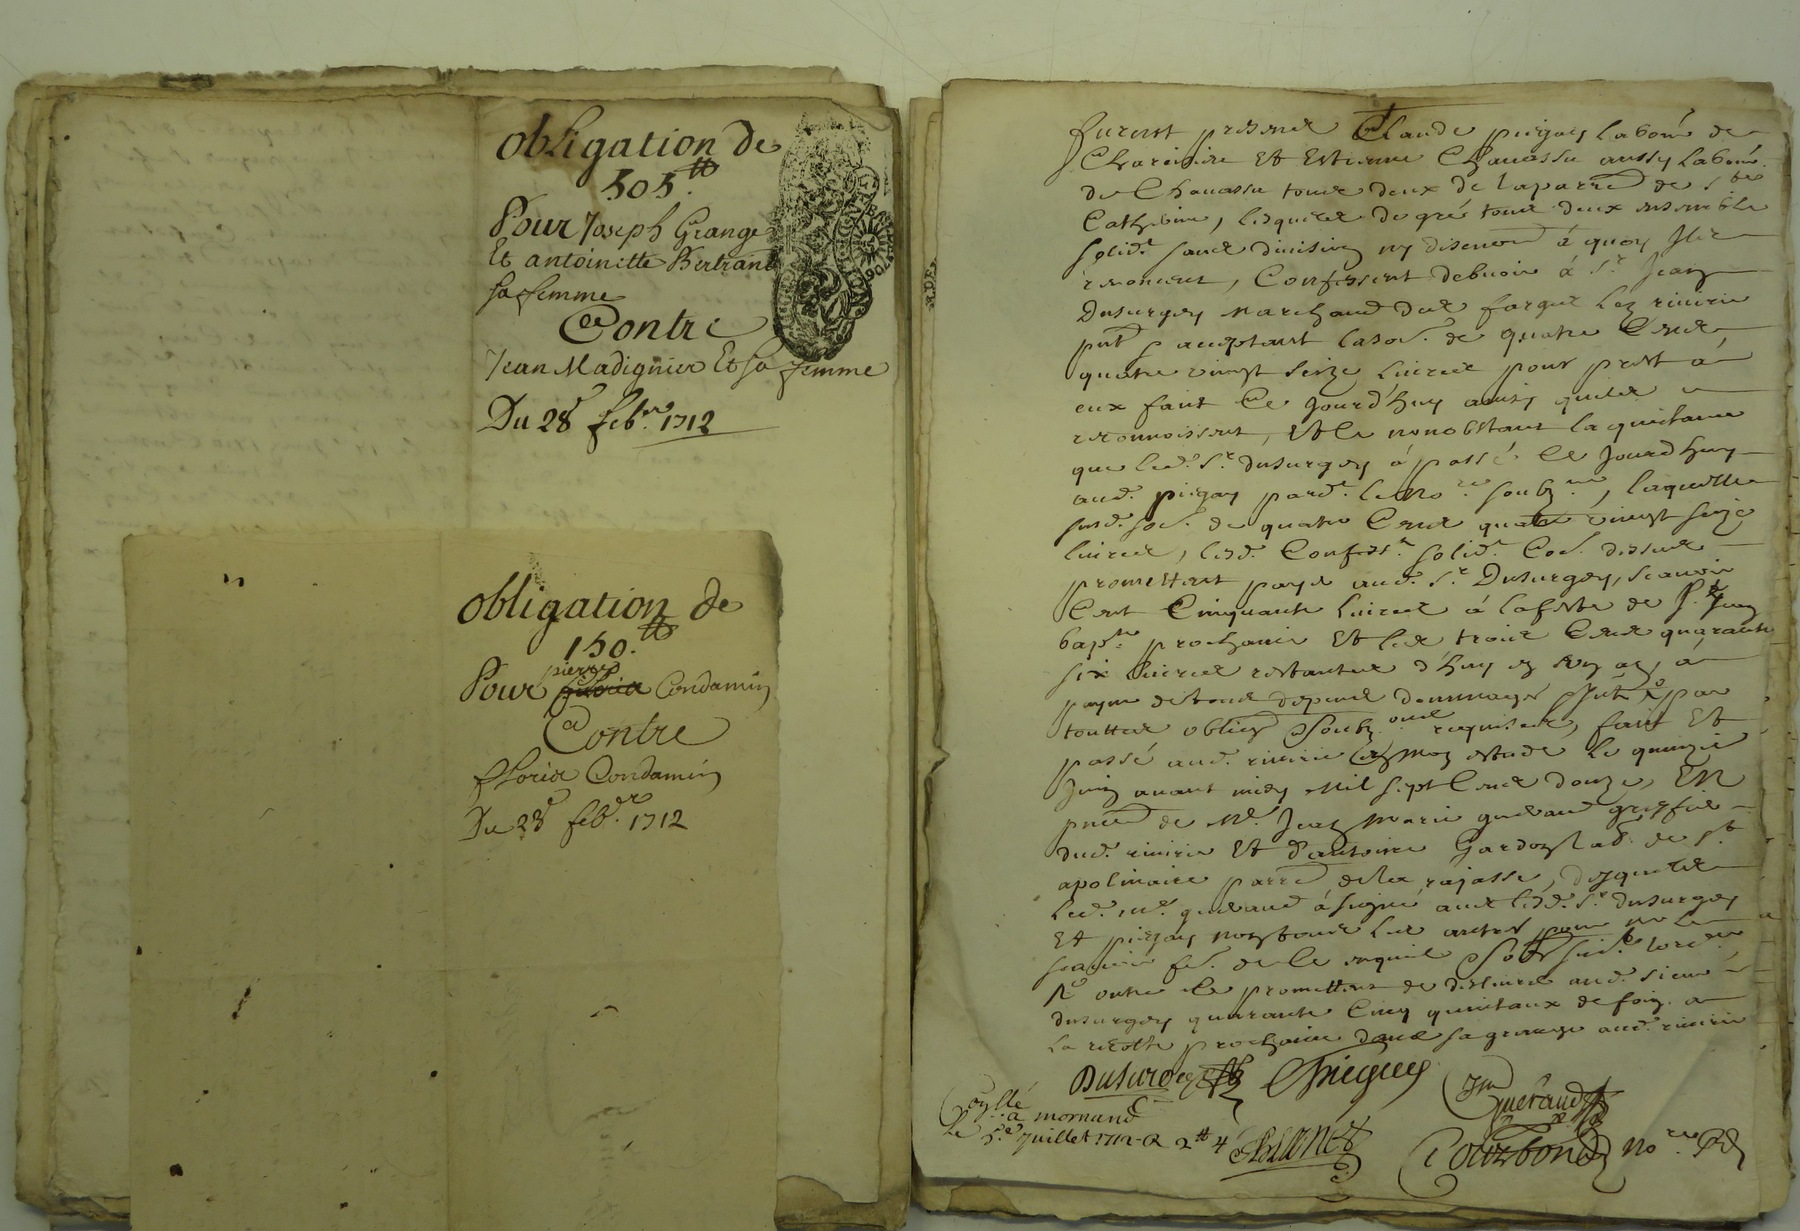 obligation de
505.tt
Pour Joseph Grange
Et antoinette Bertrant
sa femme
Contre
Jean Madignier Et sa femme
Du 28e febr. 1712
obligation de
150.tt
pierre
Pour Condamin
Contre
floria Condamin
Du 28e febr. 1712
furent presens Claude piegay labour. de
et Estienne Chavassu aussy labour.
de Chavassu tous deux de la parre. de Ste
Catherine, lesquels de gré tous deux ensemble
solid.t sans division ny discution à quoy ils
renoncent, Confessent debvoir à Sr. Jean
Dusurgey marchand des farges lez riverie
pnt. & acceptant la so.e de quatre Cens
quatre vingt seize livres pour prest à
eux fait Ce jourd'huy ainsy qu'ils
reconnoissent, et Ce nonobstant la quittance
que led. Sr. dusurgey à passé Ce jourd'huy
aud. piegay pard.t le no.re soubz.né, laquelle
sud. so.e de quatre Cens quatre vingt seize
livres, lesd. Confess.ts solid.t Co.e dessus
promettent payer aud. Sr. Dusurgey, scavoir
Cent Cinquante livres à la feste de St. Jean
bapt.e prochaine et les trois Cens quarante
six livres restantes d'huy en un an, à
payne de tous depens dommages
touttes oblig.on requises, fait et
passé aud. riverie en mon estude le quinzie
juin avant midy mil sept Cens douze, en
pnce. de Me. Jean Marie gueraud greffier
dud. riverie et d'antoine Gardon lab. de St.
apolinaire parre. de la rajasse, desquels
led. me. gueraud à signé avec lesd. Sr. dusurgey
et piegay non tous les autres pour ne le
scavoir fe. de Ce enquis
outre Ce promettent de deslivrer aud. sieur
dusurgey quarante Cinq quintaux de foin a
la recolte prochaine dans sa grange aud. riverie
Dusurgey CPiegay
Gueraud
Con.llé à mornand
le 5e Juillet 1712 R 2tt 4
Courbon no.re Rl